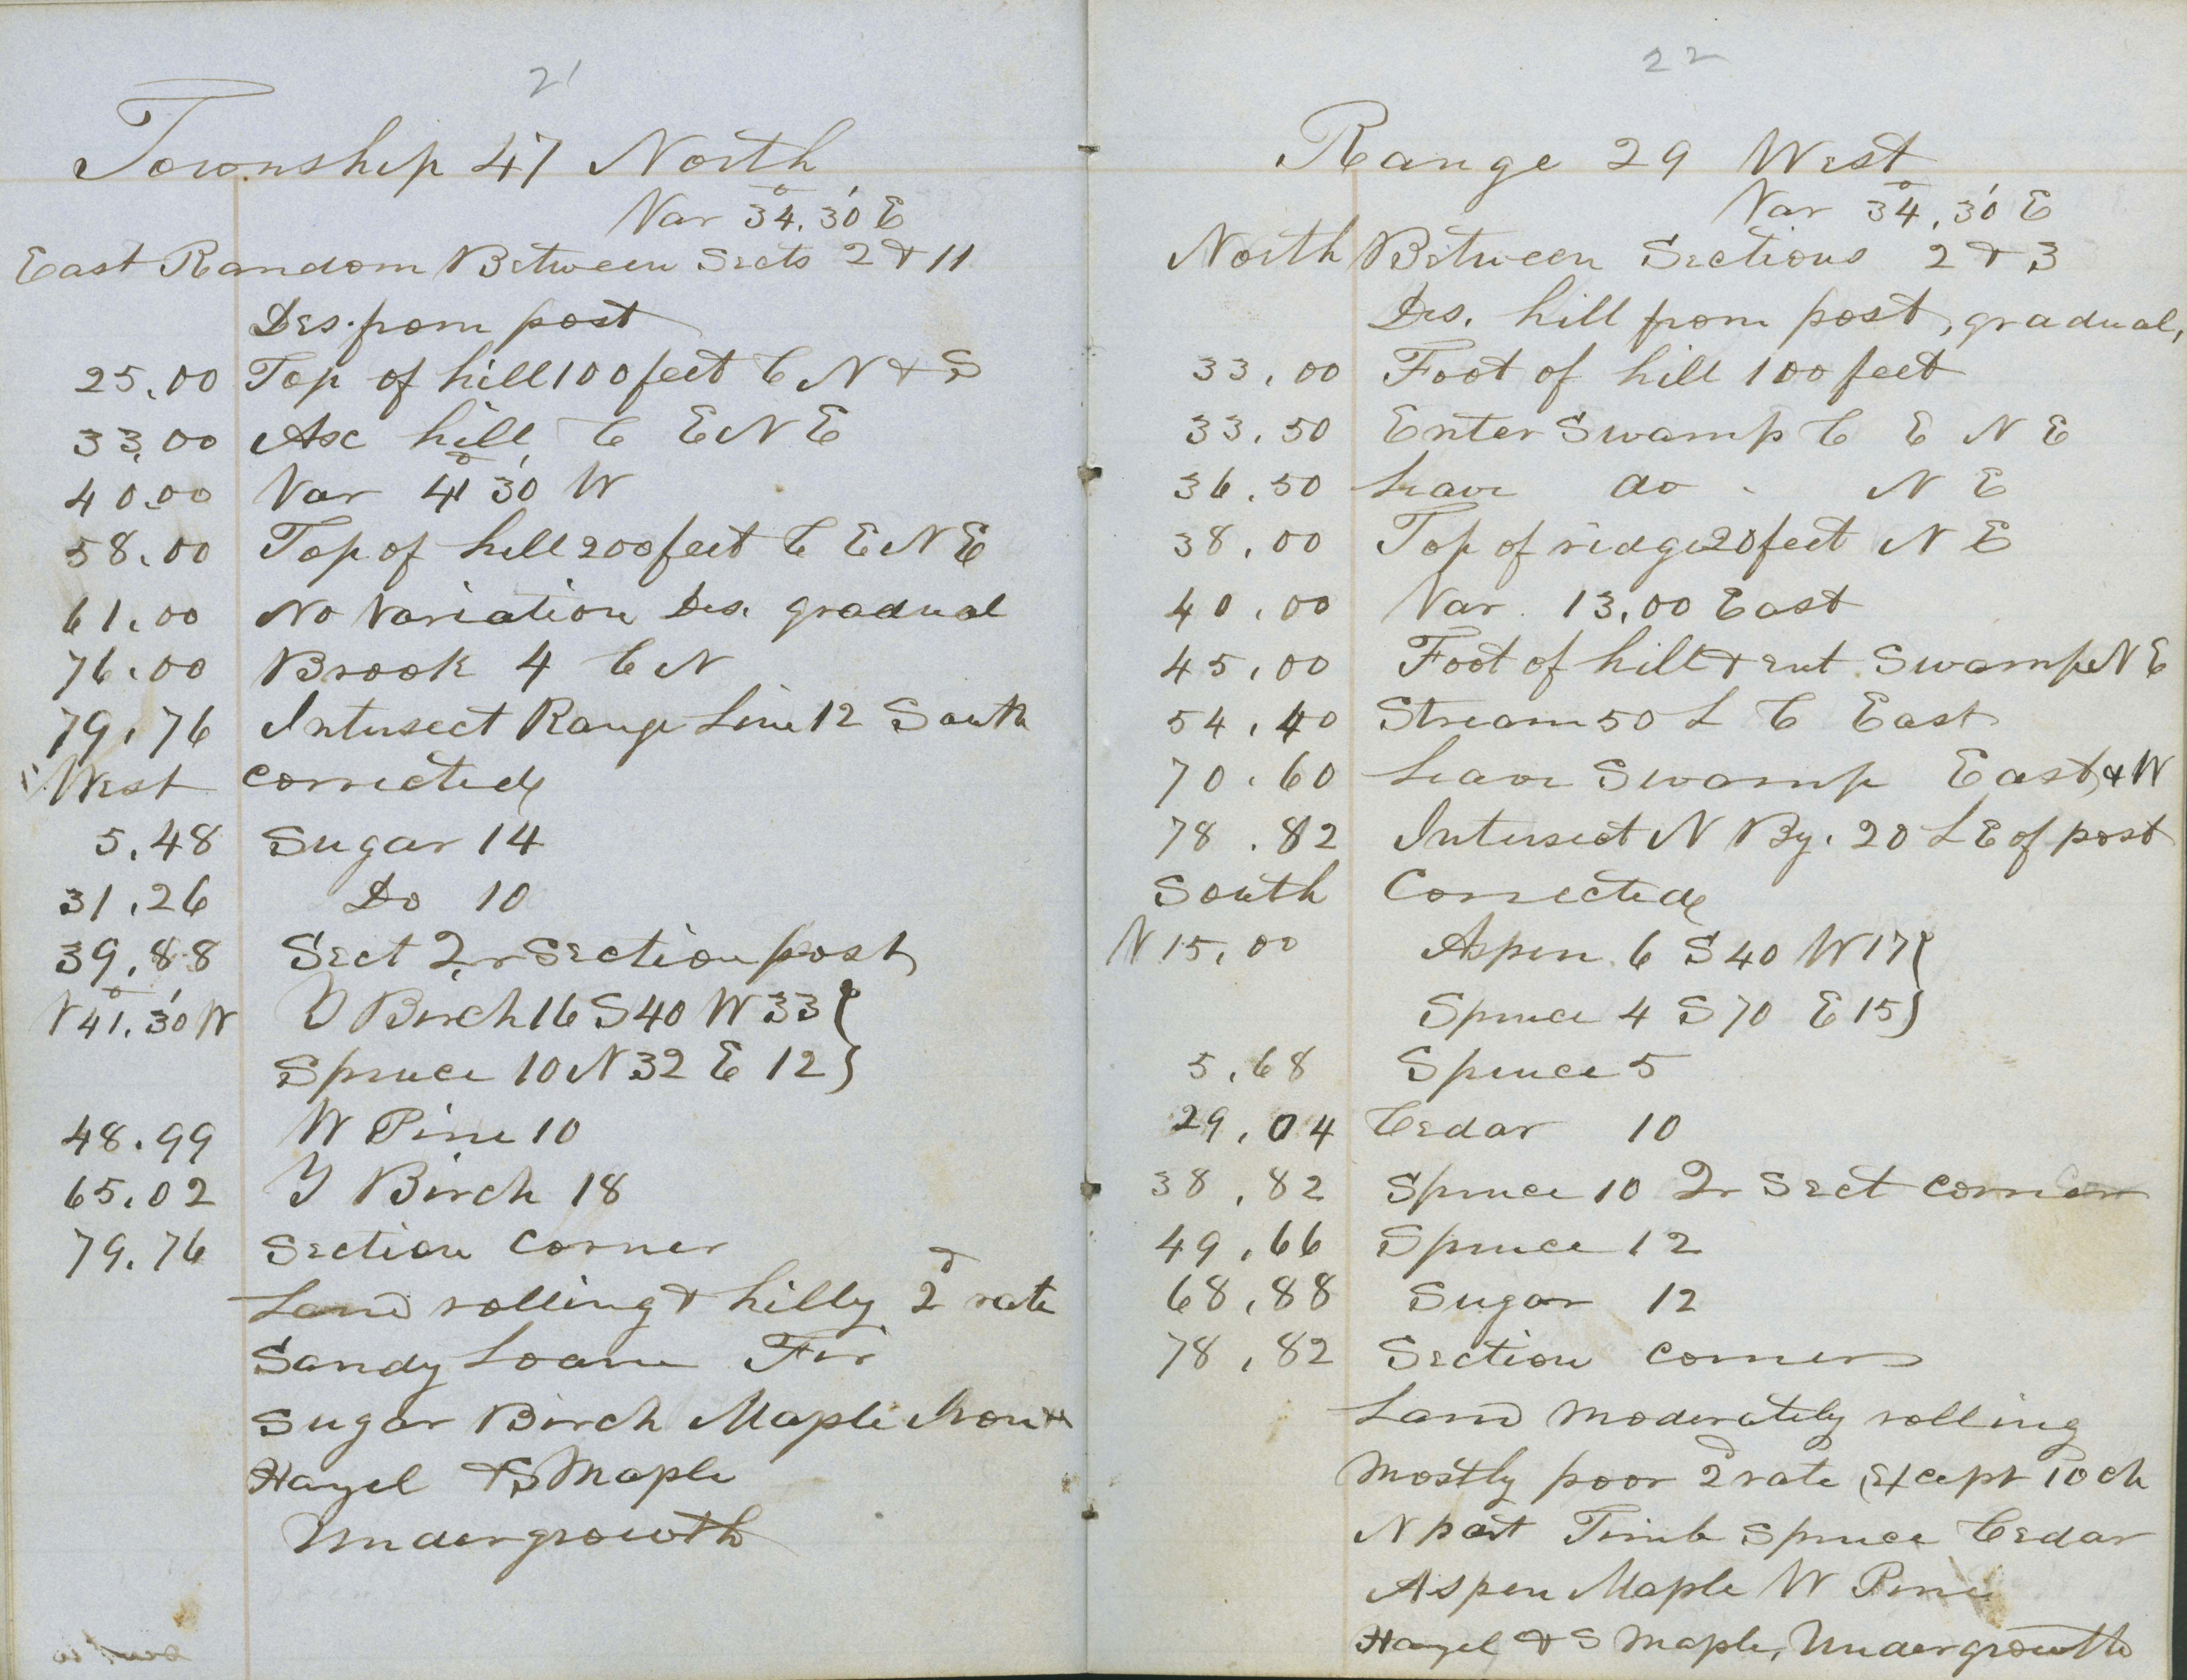 21
Township 47 North
Var 34°.30' E
East Random Between Sects 2 & 11
Des. from post
25.00 Top of hill 100 feet C N & S
33.00 Asc hill C E N E
40.00 Var 41° 30' W
58.00 Top of hill 200 feet C E N E
61.00 No Variation Des. gradual
76.00 Brook 4 C N
79.76 Intersect Range Line 12 South
West Corrected
5.48 Sugar 14
31.26 Do 10
39.88 Sect Qr Section post
N 41°.30' W Y Birch 16 S 40 W 33 }
Spruce 10 N 32 E 12 }
48.99 W Pine 10
65.02 Y Birch 18
79.76 Section Corner
Land rolling & hilly 2d rate
Sandy Loam Fir
Sugar Birch Maple Iron
Hazel & S Maple
Undergrowth
22
Range 29 West
Var 34°.30' E
North Between Sections 2 & 3
Des. hill from post, gradual,
33.00 Foot of hill 100 feet
33.50 Enter Swamp C E N E
36.50 Leave do N E
38.00 Top of ridge 20 feet N E
40.00 Var. 13.00 East
45.00 Foot of hill & ent Swamp N E
54.40 Stream 50 L C East
70.60 Leave Swamp East & W
78.82 Intersect N By. 20 L E of post
South Corrected
N 15.00 Aspen 6 S 40 W 17 }
Spruce 4 S 70 E 15 }
5.68 Spruce 5
29.04 Cedar 10
38.82 Spruce 10 Qr Sect corner
49.66 Spruce 12
68.88 Sugar 12
78.82 Section corner
Land moderately rolling
Mostly poor 2d rate except 10 ch
N part Timb Spruce Cedar
Aspen Maple W Pine
Hazel & S Maple, Undergrowth